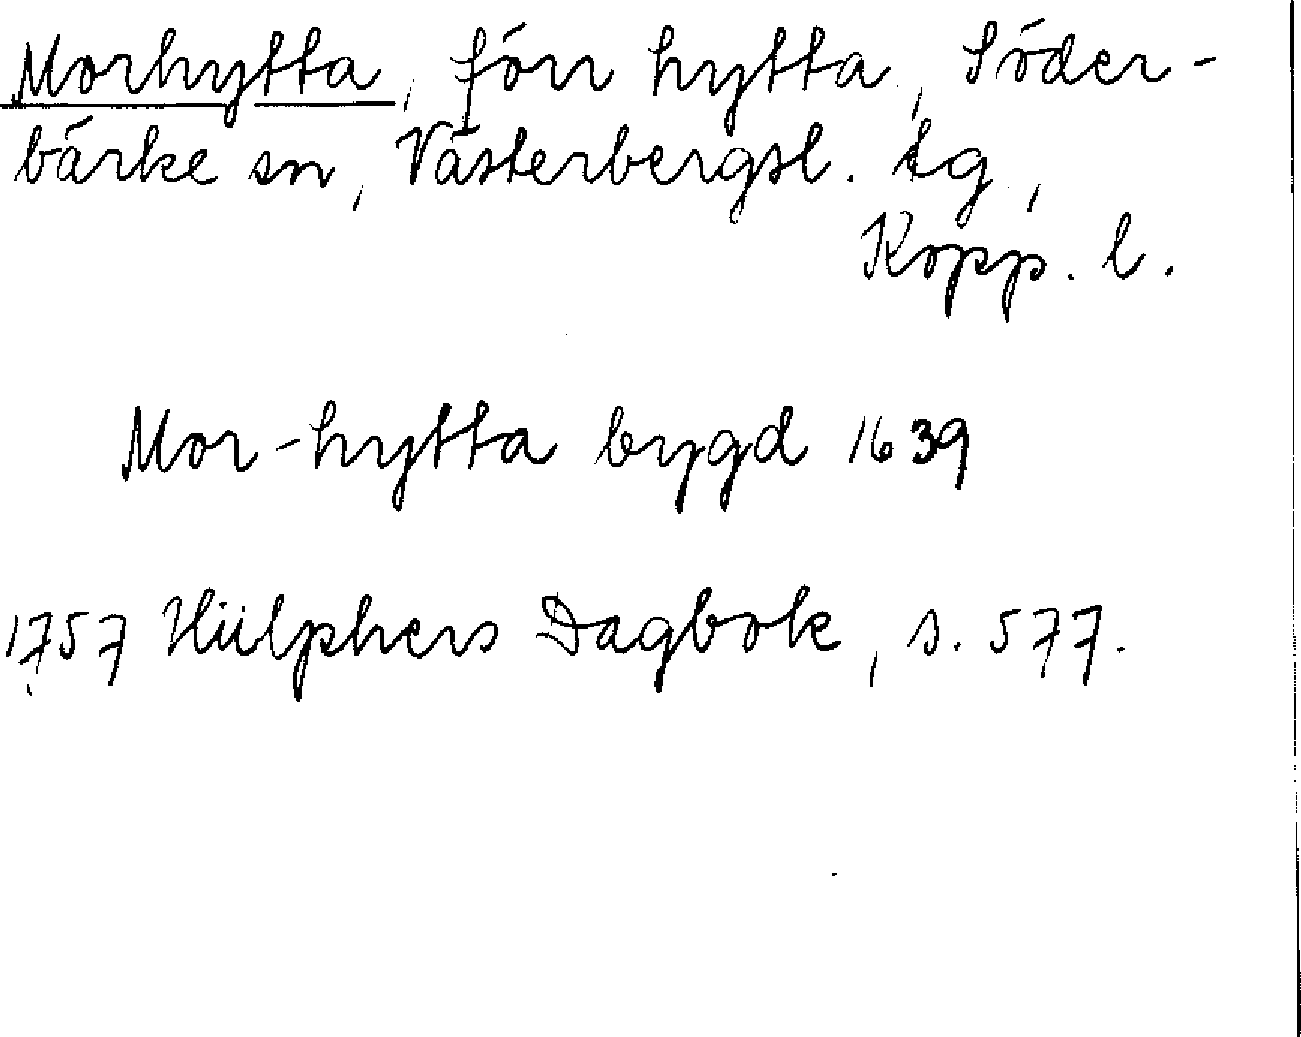 Morhytta, förr hytta, Söder-
bärke sn, Västerbergsl. tg,
Kopp. l.
Mor-hytta bygd 1639
1757 Hülphers Dagbok, s. 577.